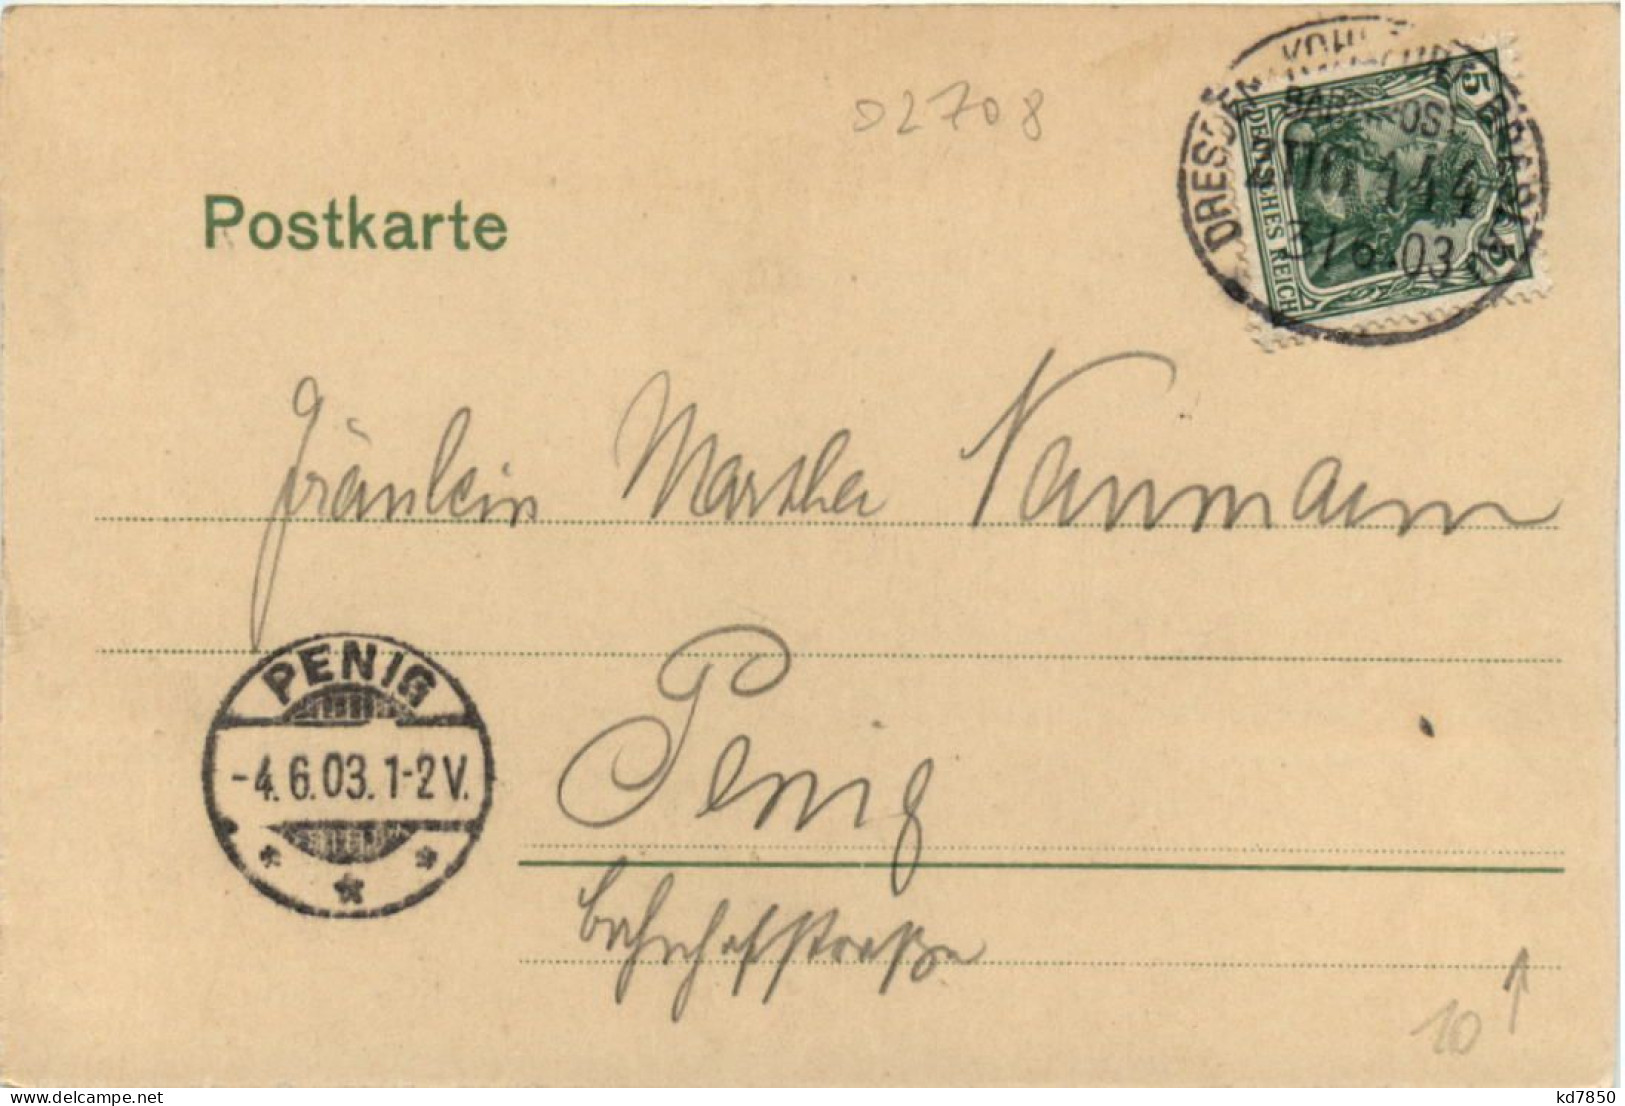 02708
Postkarte
DRESDEN
BAHNPOST
ZUG 144
3/6.03
5
5
DEUTSCHES REICH
Fräulein Martha Naumann
PENIG
-4.6.03.1-2V.
Penig
Bahnhofstraße
10
kd7850